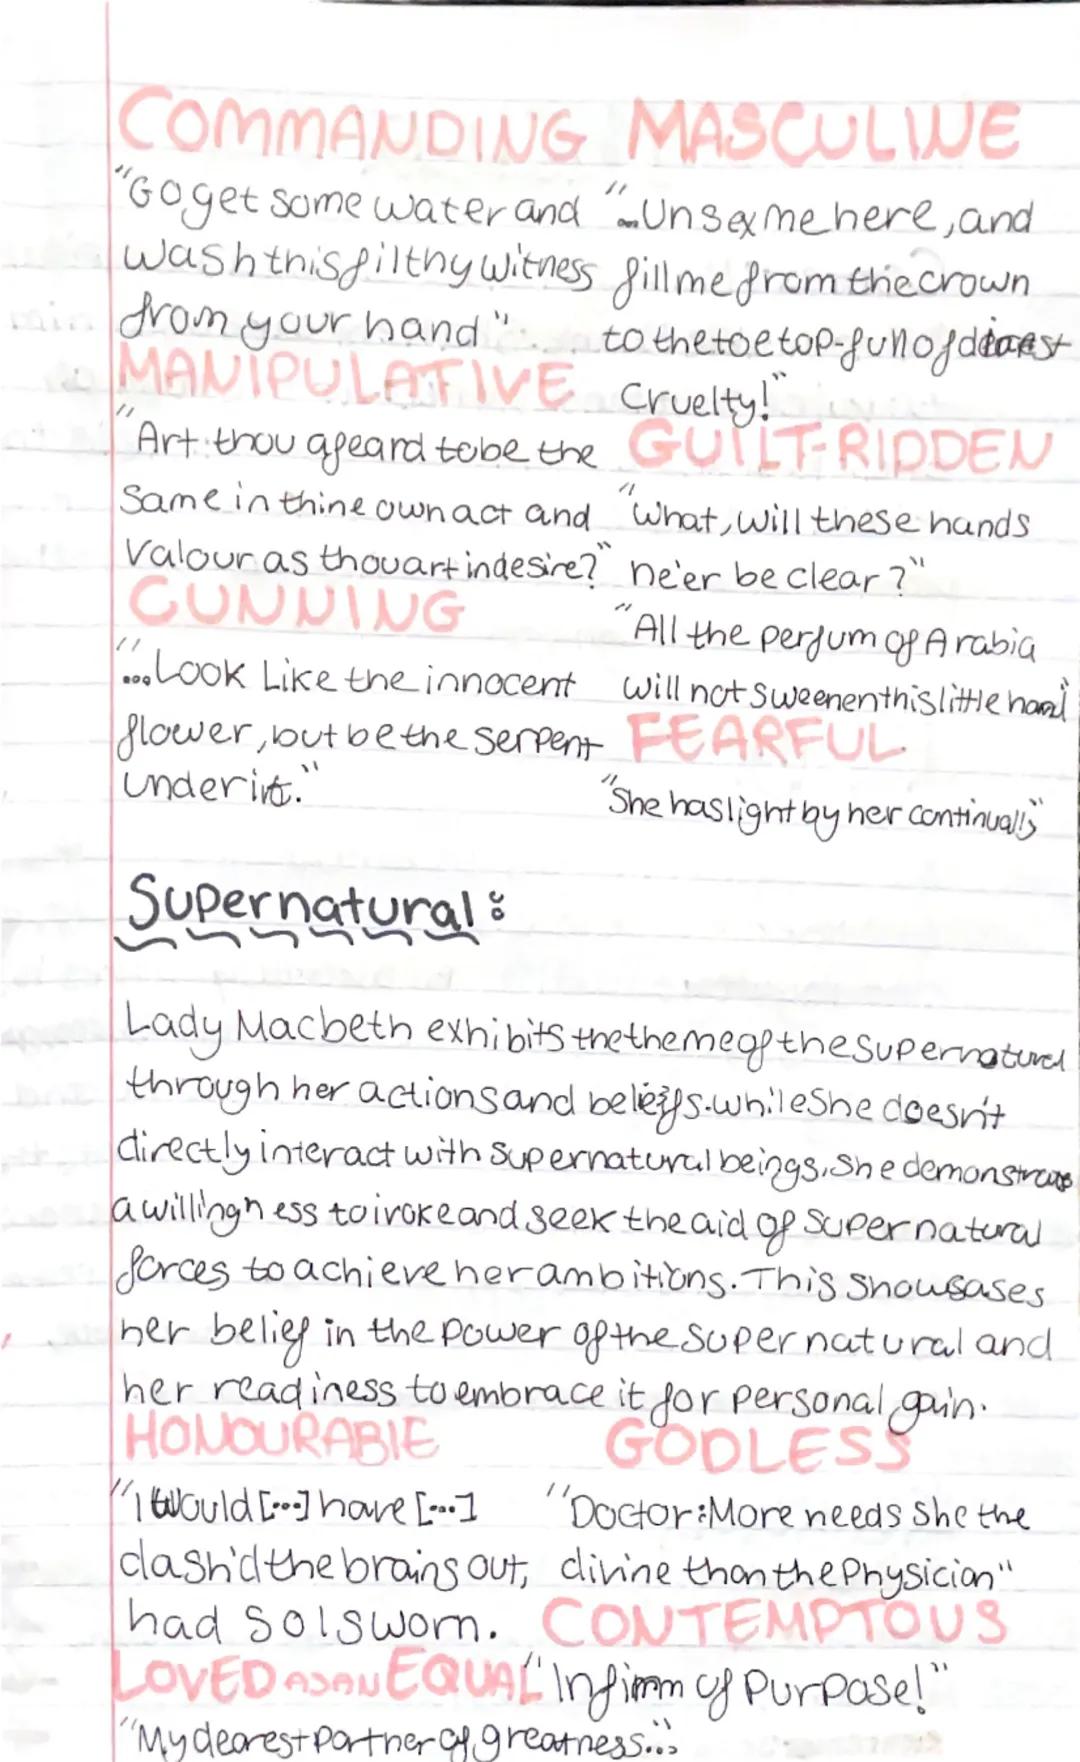 COMMANDING
"Go get some water and
wash this filthy witness
from your hand".
MANIPULATIVE
"Art thou afeard to be the
same in thine own act and
valour as thou art in desire?"
CUNNING
"...Look Like the innocent
flower, but be the serpent
under it."
MASCULINE
"...Unsex me here, and
fill me from the crown
to the toe top-full of direst
cruelty!"
GUILT-RIDDEN
"What, will these hands
ne'er be clear?"
"All the perfum of Arabia
will not sweenen this little hand"
FEARFUL
"She has light by her continually"
Supernatural:
Lady Macbeth exhibits the theme of the supernatural
through her actions and beliefs. while She doesn't
directly interact with supernatural beings, she demonstrates
a willingness to ivoke and seek the aid of supernatural
forces to achieve her ambitions. This showsases
her belief in the power of the supernatural and
her readiness to embrace it for personal gain.
HONOURABLE
"I would [...] have [...]
dash'd the brains out,
had so I sworn.
LOVED AS AN EQUAL
"My dearest partner of greatness..."
GODLESS
"Doctor: More needs She the
divine than the Physician"
CONTEMPTOUS
"Infirm of Purpose!"